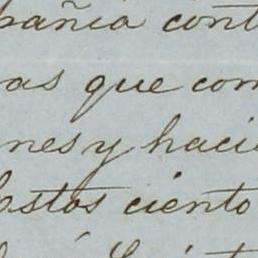 pañia cont
vas que com
nes y haci
Estos ciento